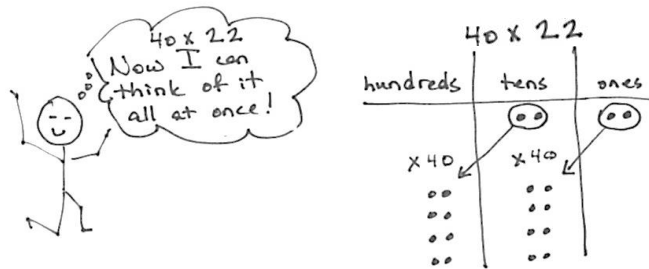 40 x 22
Now I can
think of it
all at once!
40 x 22
hundreds tens ones
x40 x40